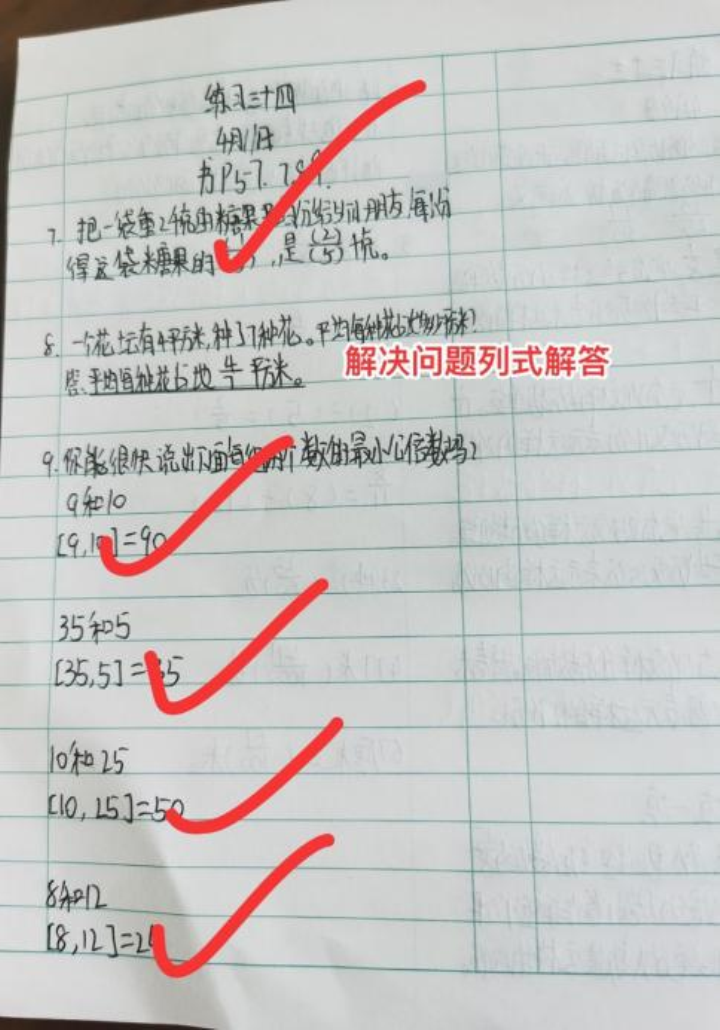 练习三十四
4月11日
书P57.7.8.9.
7. 把一袋重2千克的糖果平均分给5个小朋友,每份
得这袋糖果的 ,是(2)/(5)千克。
8. 一个花坛有4平方米,种了7种花。平均每种花占地几平方米?
解决问题列式解答
答:平均每种花占地 平方米。
9.你能很快说出下面每组两个数的最小公倍数吗?
9和10
[9,10]=90
35和5
[35,5]=35
10和25
[10,25]=50
8和12
[8,12]=24